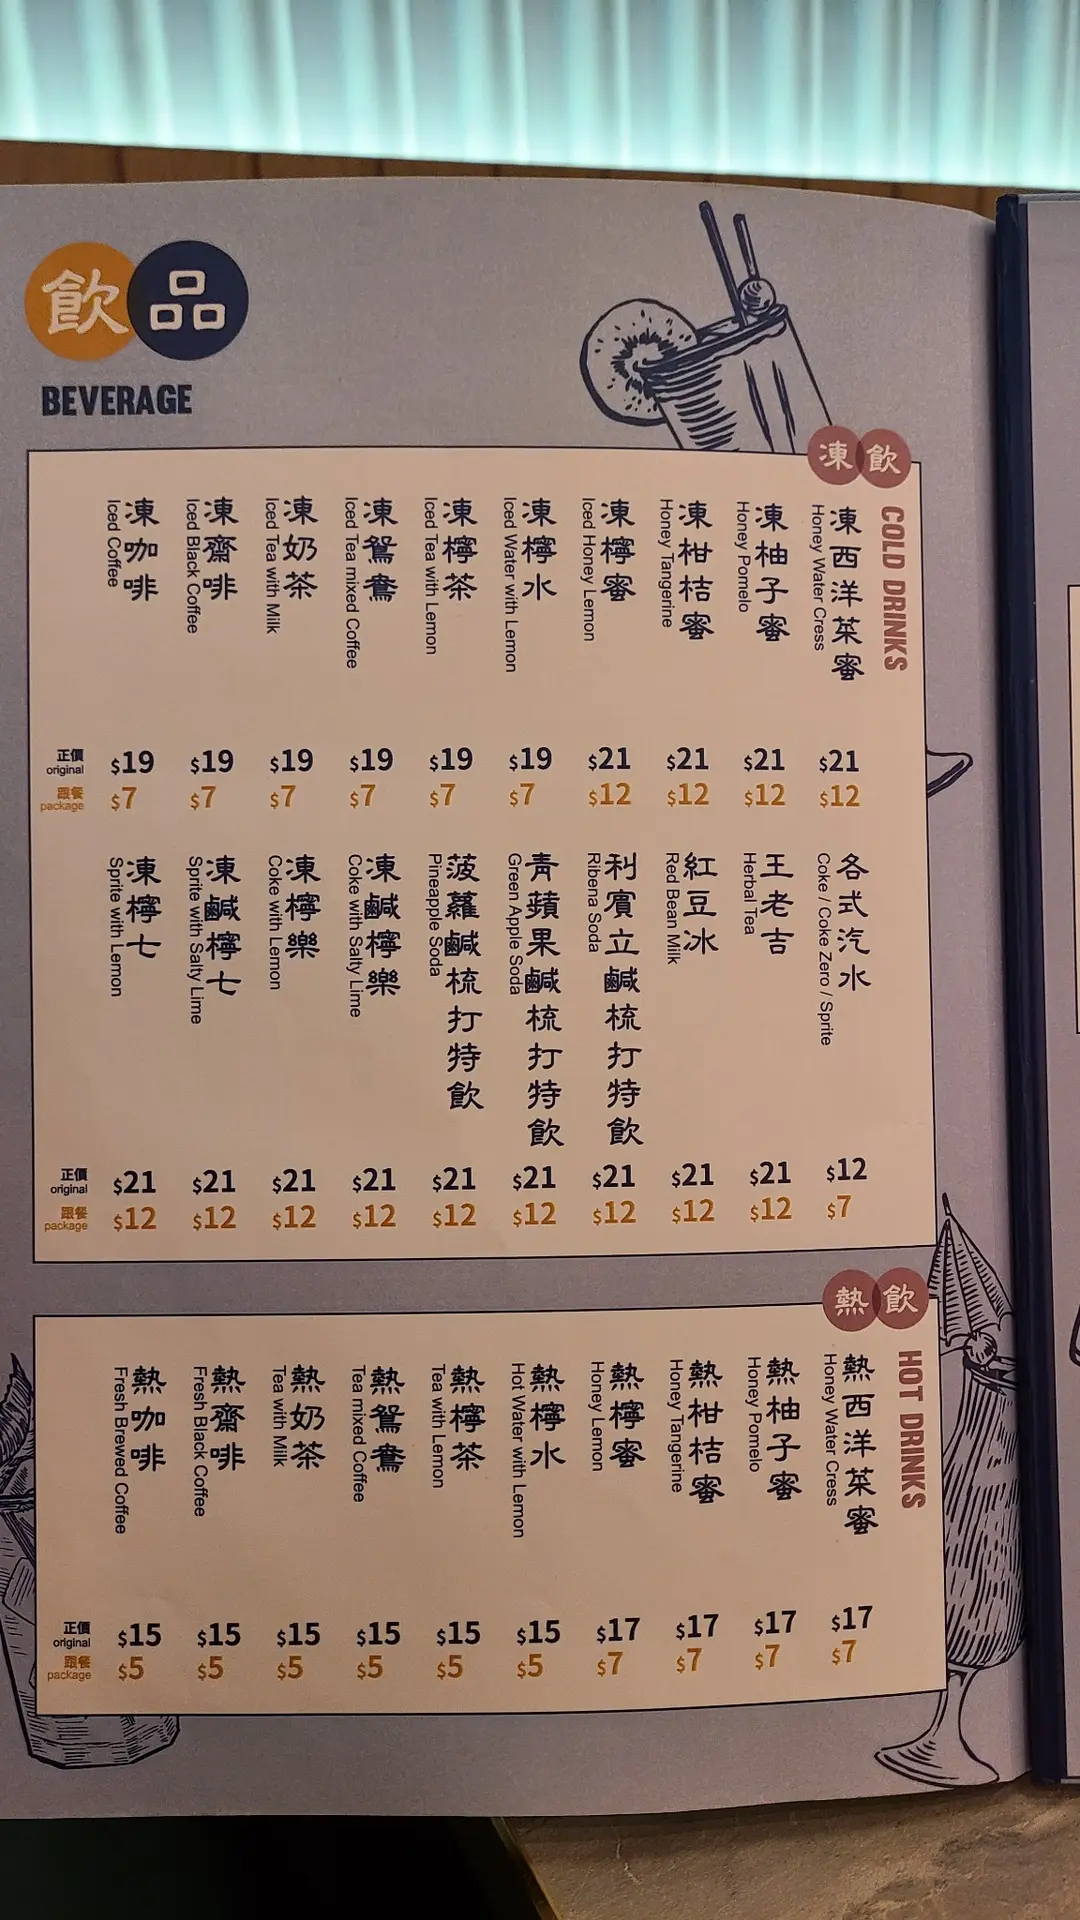 飲品
BEVERAGE
凍飲
COLD DRINKS
凍西洋菜蜜
Honey Water Cress
$21
$12
凍柚子蜜
Honey Pomelo
$21
$12
凍柑桔蜜
Honey Tangerine
$21
$12
凍檸蜜
Iced Honey Lemon
$21
$12
凍檸水
Iced Water with Lemon
$19
$7
凍檸茶
Iced Tea with Lemon
$19
$7
凍鴛鴦
Iced Tea mixed Coffee
$19
$7
凍奶茶
Iced Tea with Milk
$19
$7
凍齋啡
Iced Black Coffee
$19
$7
凍咖啡
Iced Coffee
$19
$7
正價
original
跟餐
package
各式汽水
Coke / Coke Zero / Sprite
$12
$7
王老吉
Herbal Tea
$21
$12
紅豆冰
Red Bean Milk
$21
$12
利賓立鹹梳打特飲
Ribena Soda
$21
$12
青蘋果鹹梳打特飲
Green Apple Soda
$21
$12
菠蘿鹹梳打特飲
Pineapple Soda
$21
$12
凍鹹檸樂
Coke with Salty Lime
$21
$12
凍檸樂
Coke with Lemon
$21
$12
凍鹹檸七
Sprite with Salty Lime
$21
$12
凍檸七
Sprite with Lemon
$21
$12
正價
original
跟餐
package
熱飲
HOT DRINKS
熱西洋菜蜜
Honey Water Cress
$17
$7
熱柚子蜜
Honey Pomelo
$17
$7
熱柑桔蜜
Honey Tangerine
$17
$7
熱檸蜜
Honey Lemon
$17
$7
熱檸水
Hot Water with Lemon
$15
$5
熱檸茶
Tea with Lemon
$15
$5
熱鴛鴦
Tea mixed Coffee
$15
$5
熱奶茶
Tea with Milk
$15
$5
熱齋啡
Fresh Black Coffee
$15
$5
熱咖啡
Fresh Brewed Coffee
$15
$5
正價
original
跟餐
package